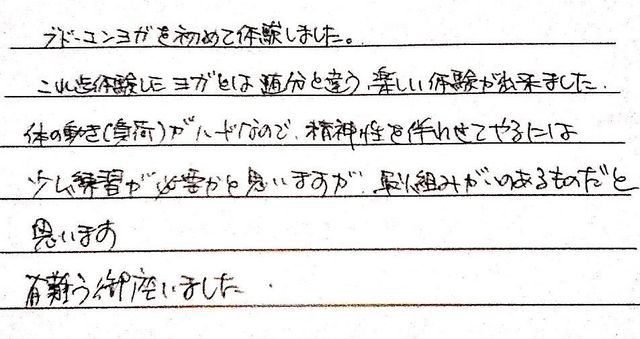 ブドーエンヨガを初めて体験しました。
これ迄体験したヨガとは随分と違う、楽しい体験が出来ました.
体の動き(負荷)がハードなので、精神性を伴わせてやるには
少し練習が必要かと思いますが、取り組みがいのあるものだと
思います
有難う御座いました.